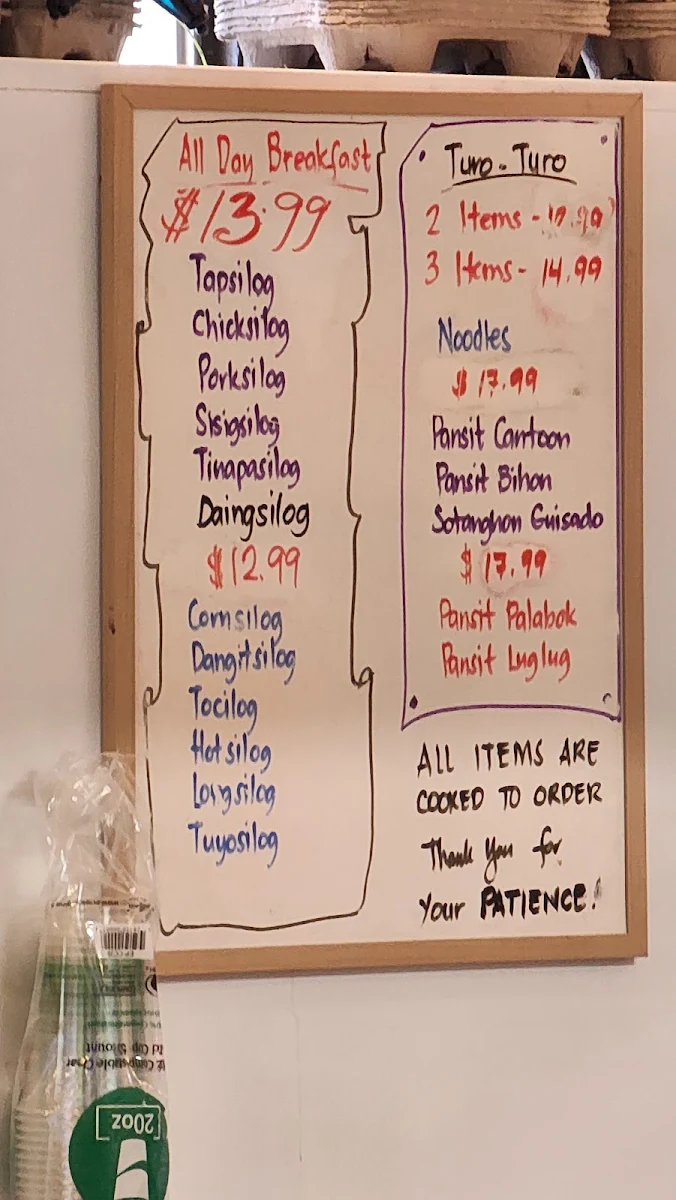 All Day Breakfast
$13.99
Tapsilog
Chicksilog
Porksilog
Sisigsilog
Tinapasilog
Daingsilog
$12.99
Cornsilog
Dangitsilog
Tocilog
Hotsilog
Longsilog
Tuyosilog
Turo-Turo
2 Items -
3 Items- 14.99
Noodles
$ 17.99
Pansit Cantoon
Pansit Bihon
Sotanghon Guisado
$ 17.99
Pansit Palabok
Pansit Luglug
ALL ITEMS ARE
COOKED TO ORDER
Thank You for
Your PATIENCE!
20oz